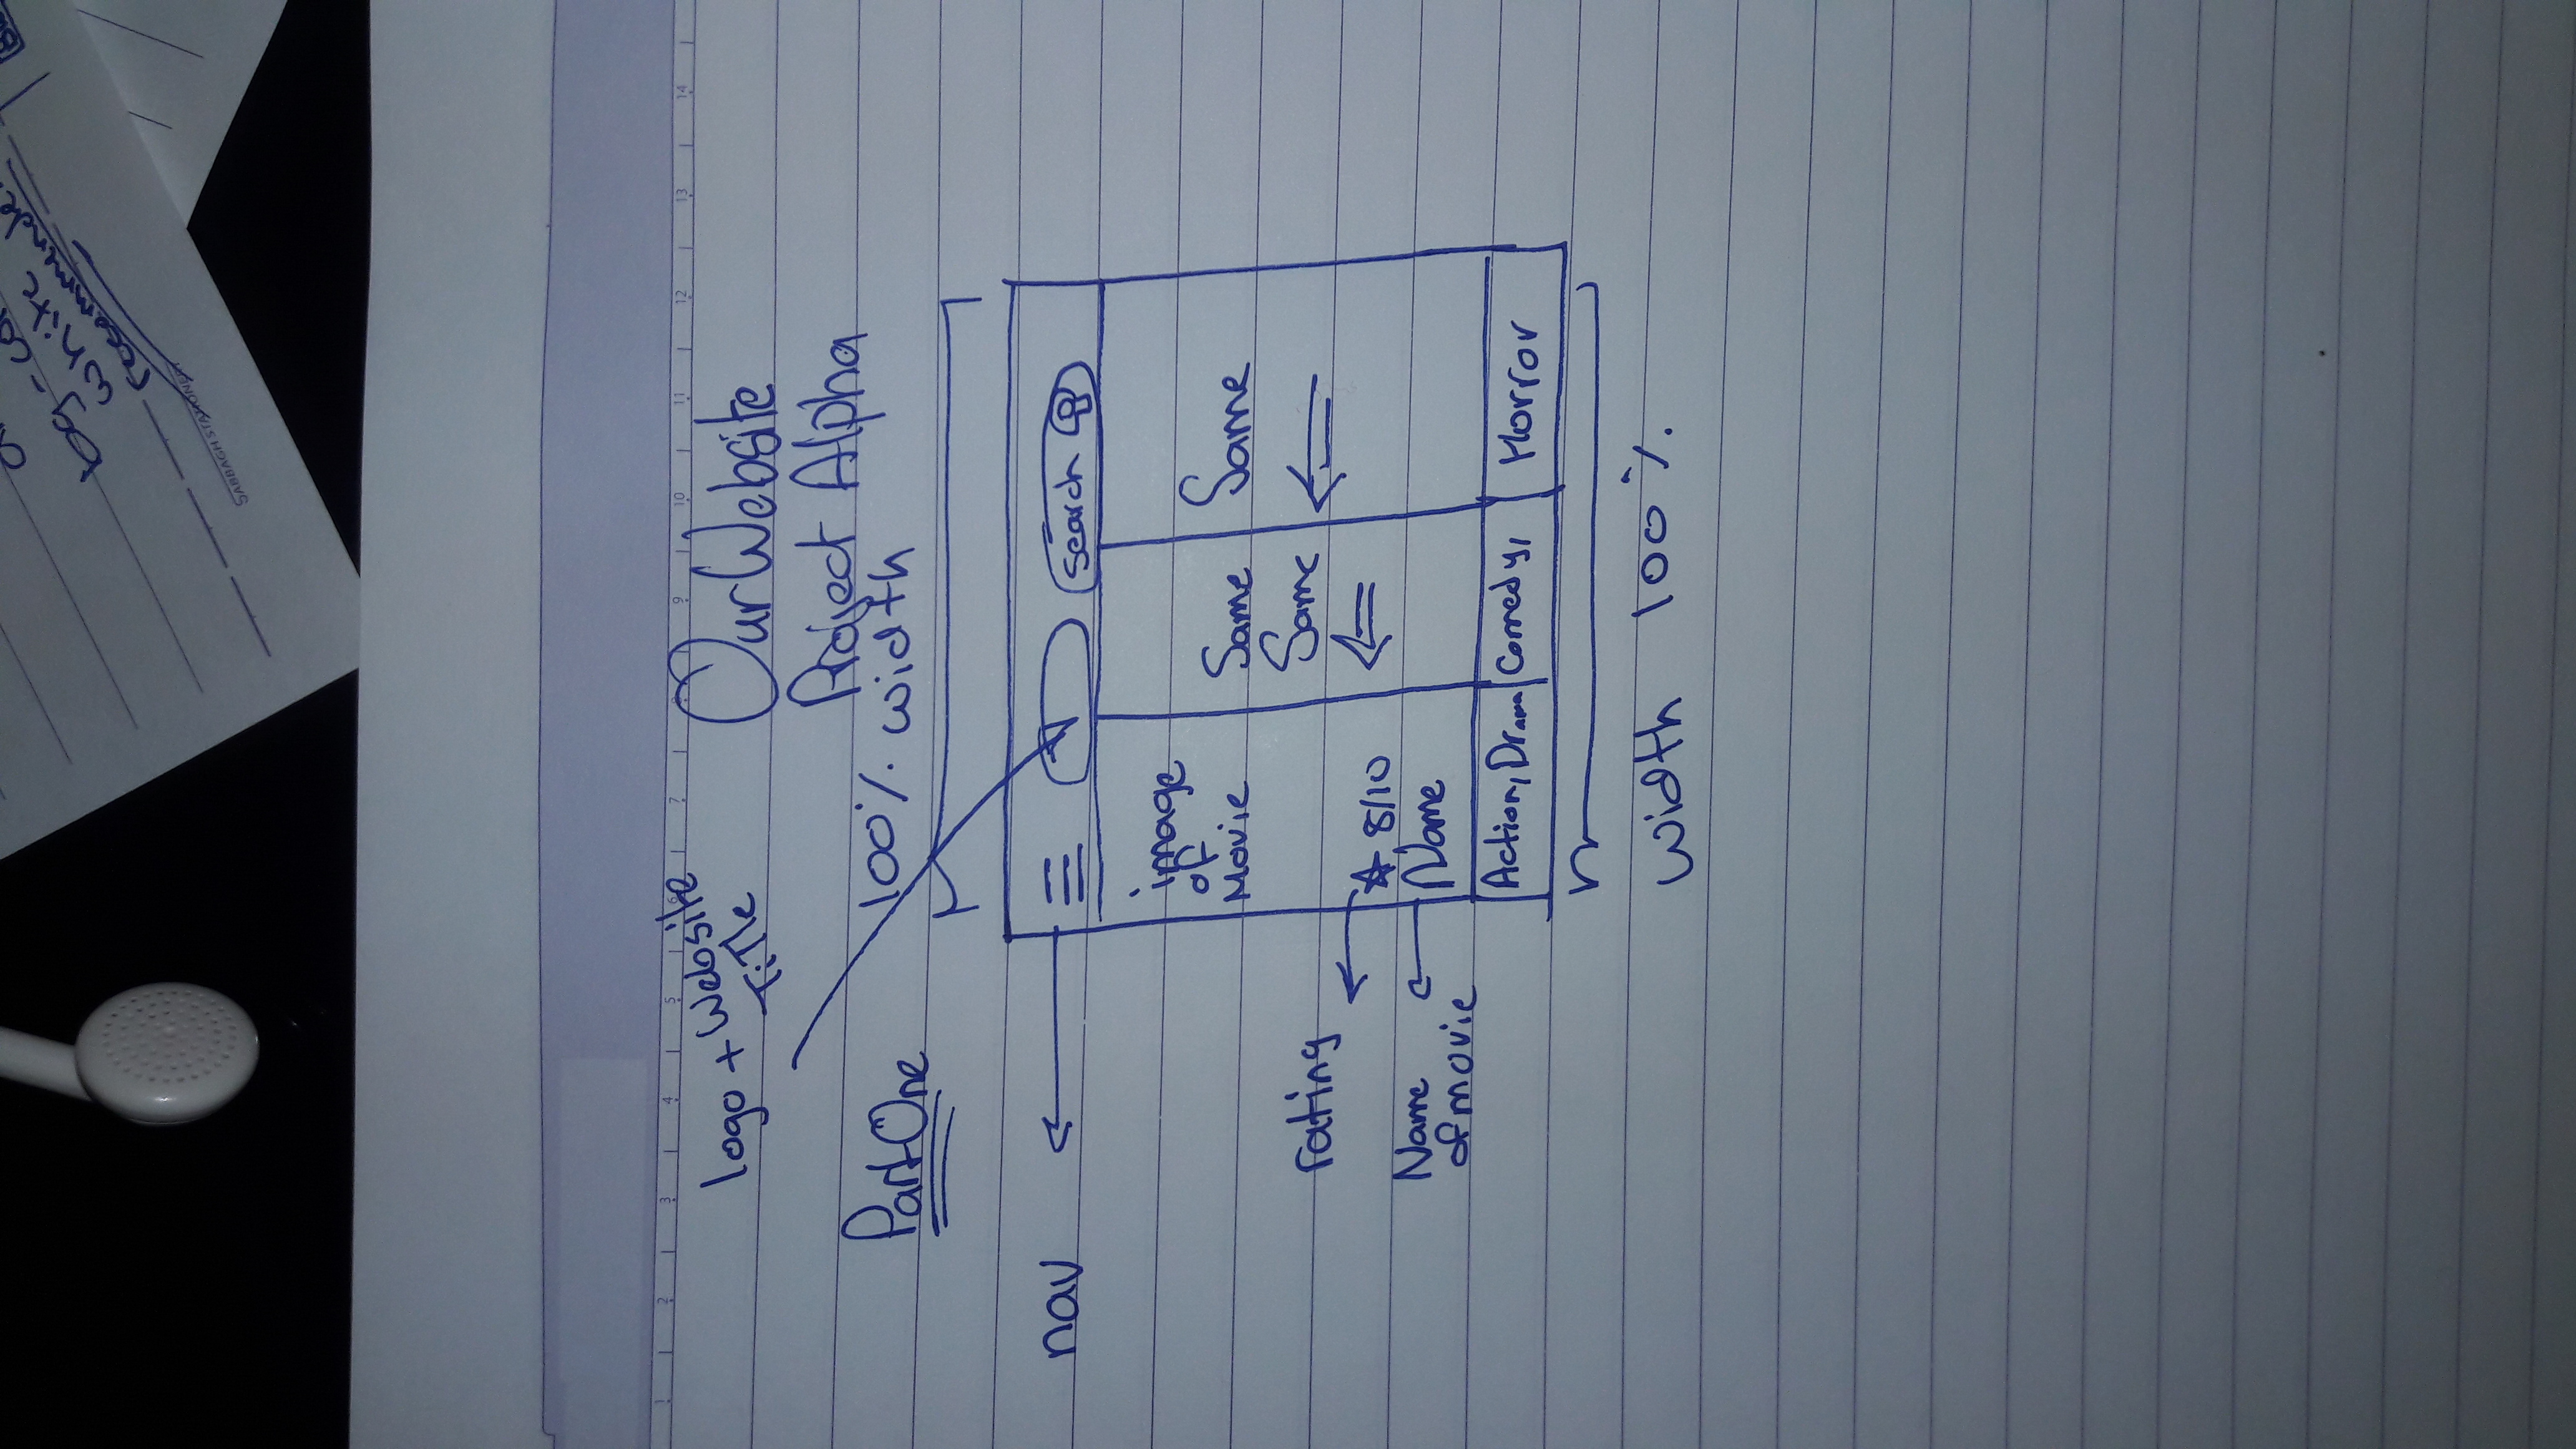 bg-co
white
recommende
SABBAGH STATIONERY
1 2 3 4 5 6 7 8 9 10 11 12 13 14
logo + Website
TiTle
Our Website
Project Alpha
Part One
100% width
nav
search
image
of
Movie
Same
Same
Same
rating
8/10
Name
of movie
Name
Action, Drama
Comedy,
Horror
width 100%